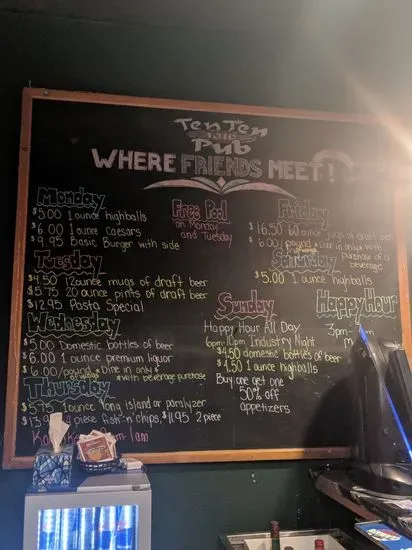 Ten Ten
1010
Pub
WHERE FRIENDS MEET!
Monday
$5.00 1 ounce highballs
$6.00 1 ounce Caesars
$9.95 Basic Burger with side
Tuesday
$4.50 12 ounce mugs of draft beer
$5.75 20 ounce pints of draft beer
$12.95 Pasta Special
Wednesday
$5.00 Domestic bottles of beer
$6.00 1 ounce premium liquor
$6.00/pound *Dine in only*
of wings *with beverage purchase
Thursday
$5.75 1 ounce long island or paralyzer
2 piece fish n' chips, $11.95 2 piece
1am
Free Pool
on Monday
and Tuesday
Friday
$16.50 60 ounce jugs of draft beer
$6.00/pound *Dine in only with
of wings purchase of a
beverage
Saturday
$5.00 1 ounce highballs
Sunday
Happy Hour All Day
6pm-10pm Industry Night
$4.50 domestic bottles of beer
$4.50 1 ounce highballs
Buy one get one
50% off
appetizers
Happy Hour
3pm-